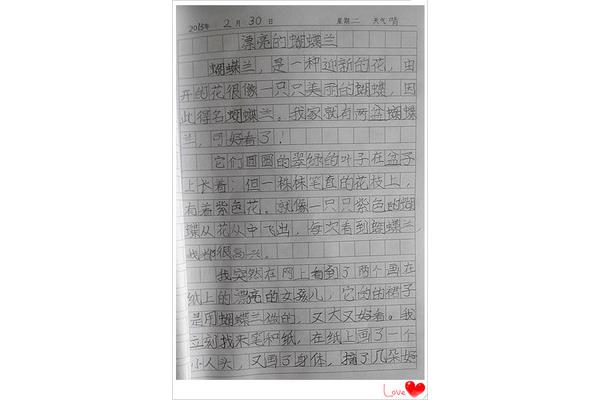 2015年 2月 30日 星期二 天气 晴
漂亮的蝴蝶兰
蝴蝶兰，是一种迎新的花，由
开的花很像一只只美丽的蝴蝶，因
此得名蝴蝶兰。我家就有两盆蝴蝶
兰，可好看了！
它们圆圆的翠绿的叶子在盆子
上长着；但一株株笔直的花枝上，
有着紫色花。就像一只只紫色的蝴
蝶从花丛中飞出，每次看到蝴蝶兰，
我都很高兴。
我突然在网上看到了两个画在
纸上的漂亮的女孩儿，它们的裙子
是用蝴蝶兰做的，又大又好看。我
立刻找来笔和纸，在纸上画了一个
小人头，又画了身体，摘了几朵好
Love